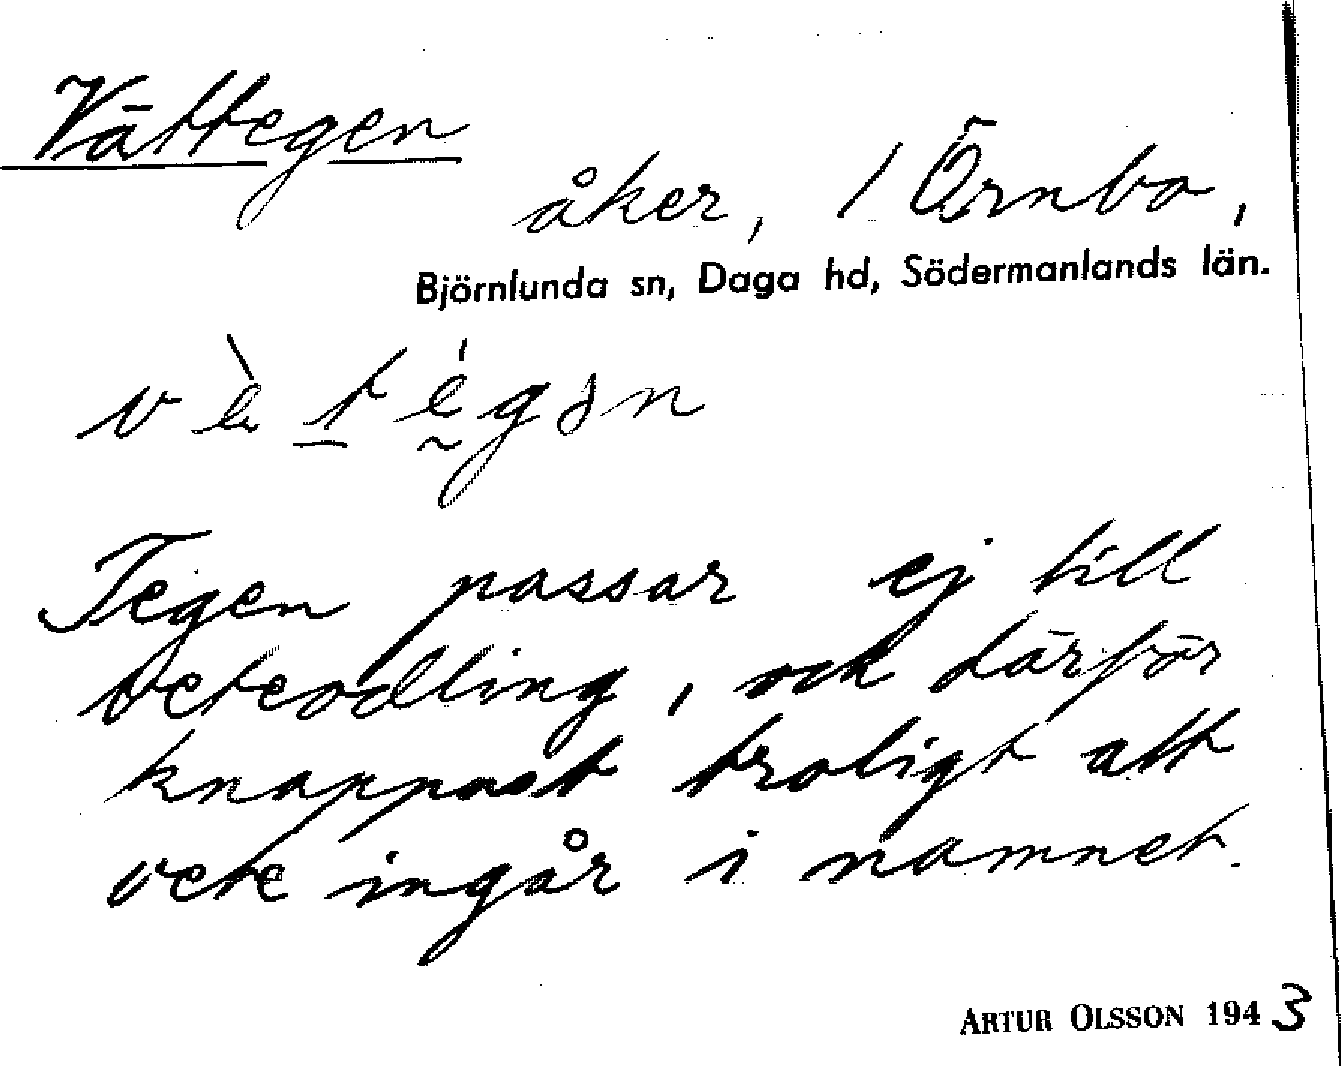 Vättegen
åker, / Örnbo,
Björnlunda sn, Daga hd, Södermanlands län.
vètégən
Tegen passar ej till
veteodling, och därför
knappast troligt att
vete ingår i namnet.
ARTUR OLSSON 1943